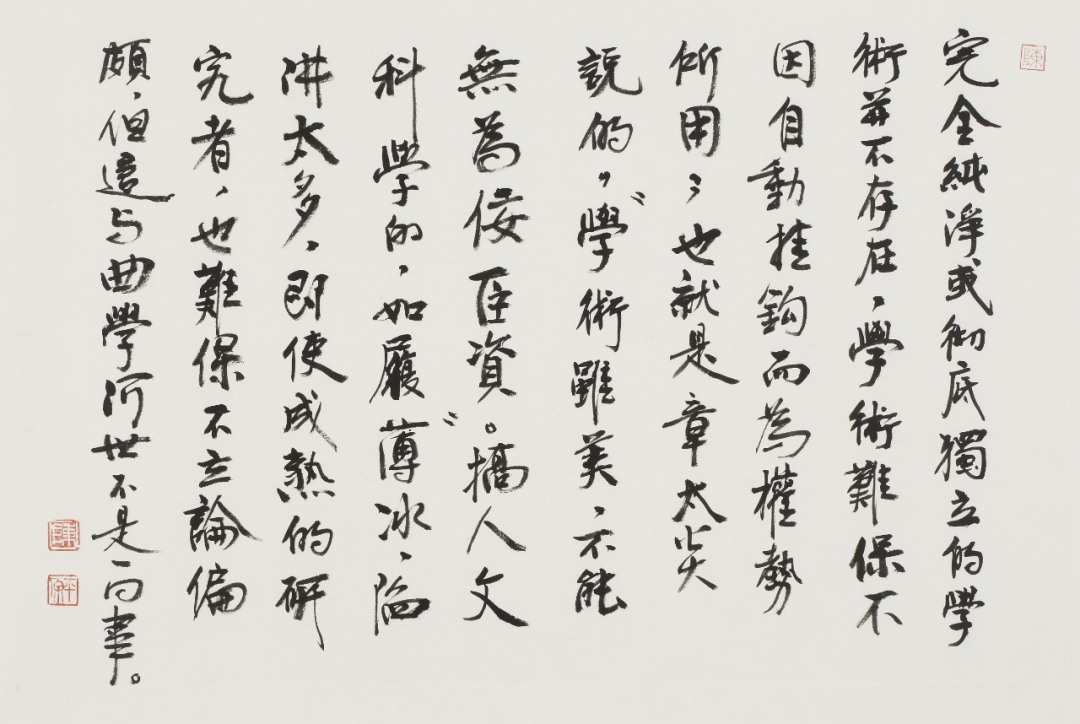 陳
完全純淨或彻底獨立的學
術并不存在，學術難保不
因自動挂鈎而為權勢
所用；也就是章太炎
説的，“學術雖美，不能
無為佞臣資”。搞人文
科學的，如履薄冰，陷
阱太多，即使成熟的研
究者，也難保不立論偏
頗，但這与曲學阿世不是一回事。